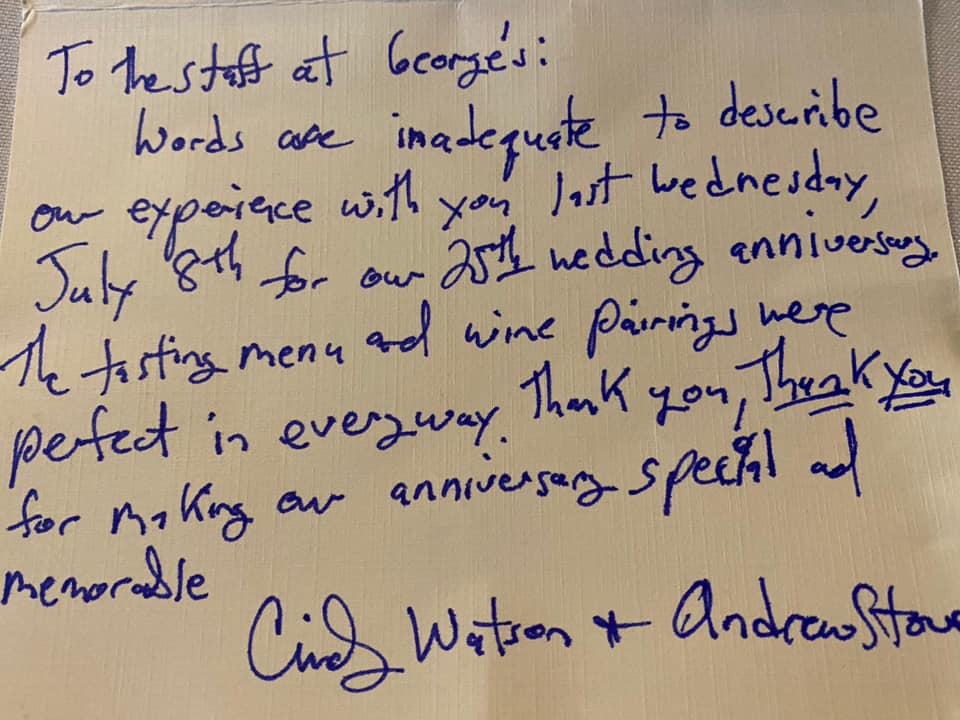 To the staff at George's:
Words are inadequate to describe
our experience with you last Wednesday,
July 8th for our 25th wedding anniversary.
The tasting menu and wine pairings were
perfect in every way. Thank you, Thank you
for making our anniversary special and
memorable
Cindy Watson + Andrew